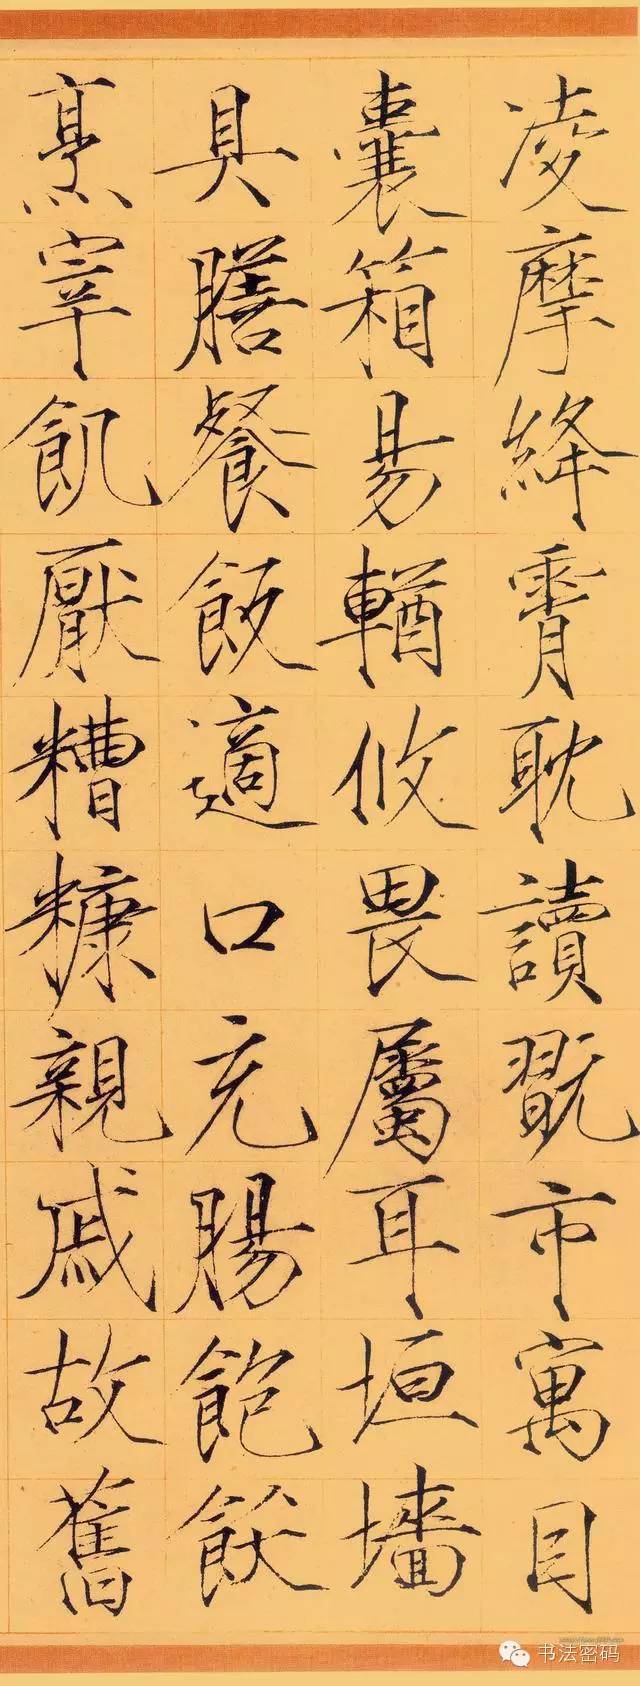 凌摩絳霄耽讀翫市寓目
囊箱易輶攸畏屬耳垣墻
具膳餐飯適口充腸飽飫
烹宰飢厭糟糠親戚故舊
书法密码